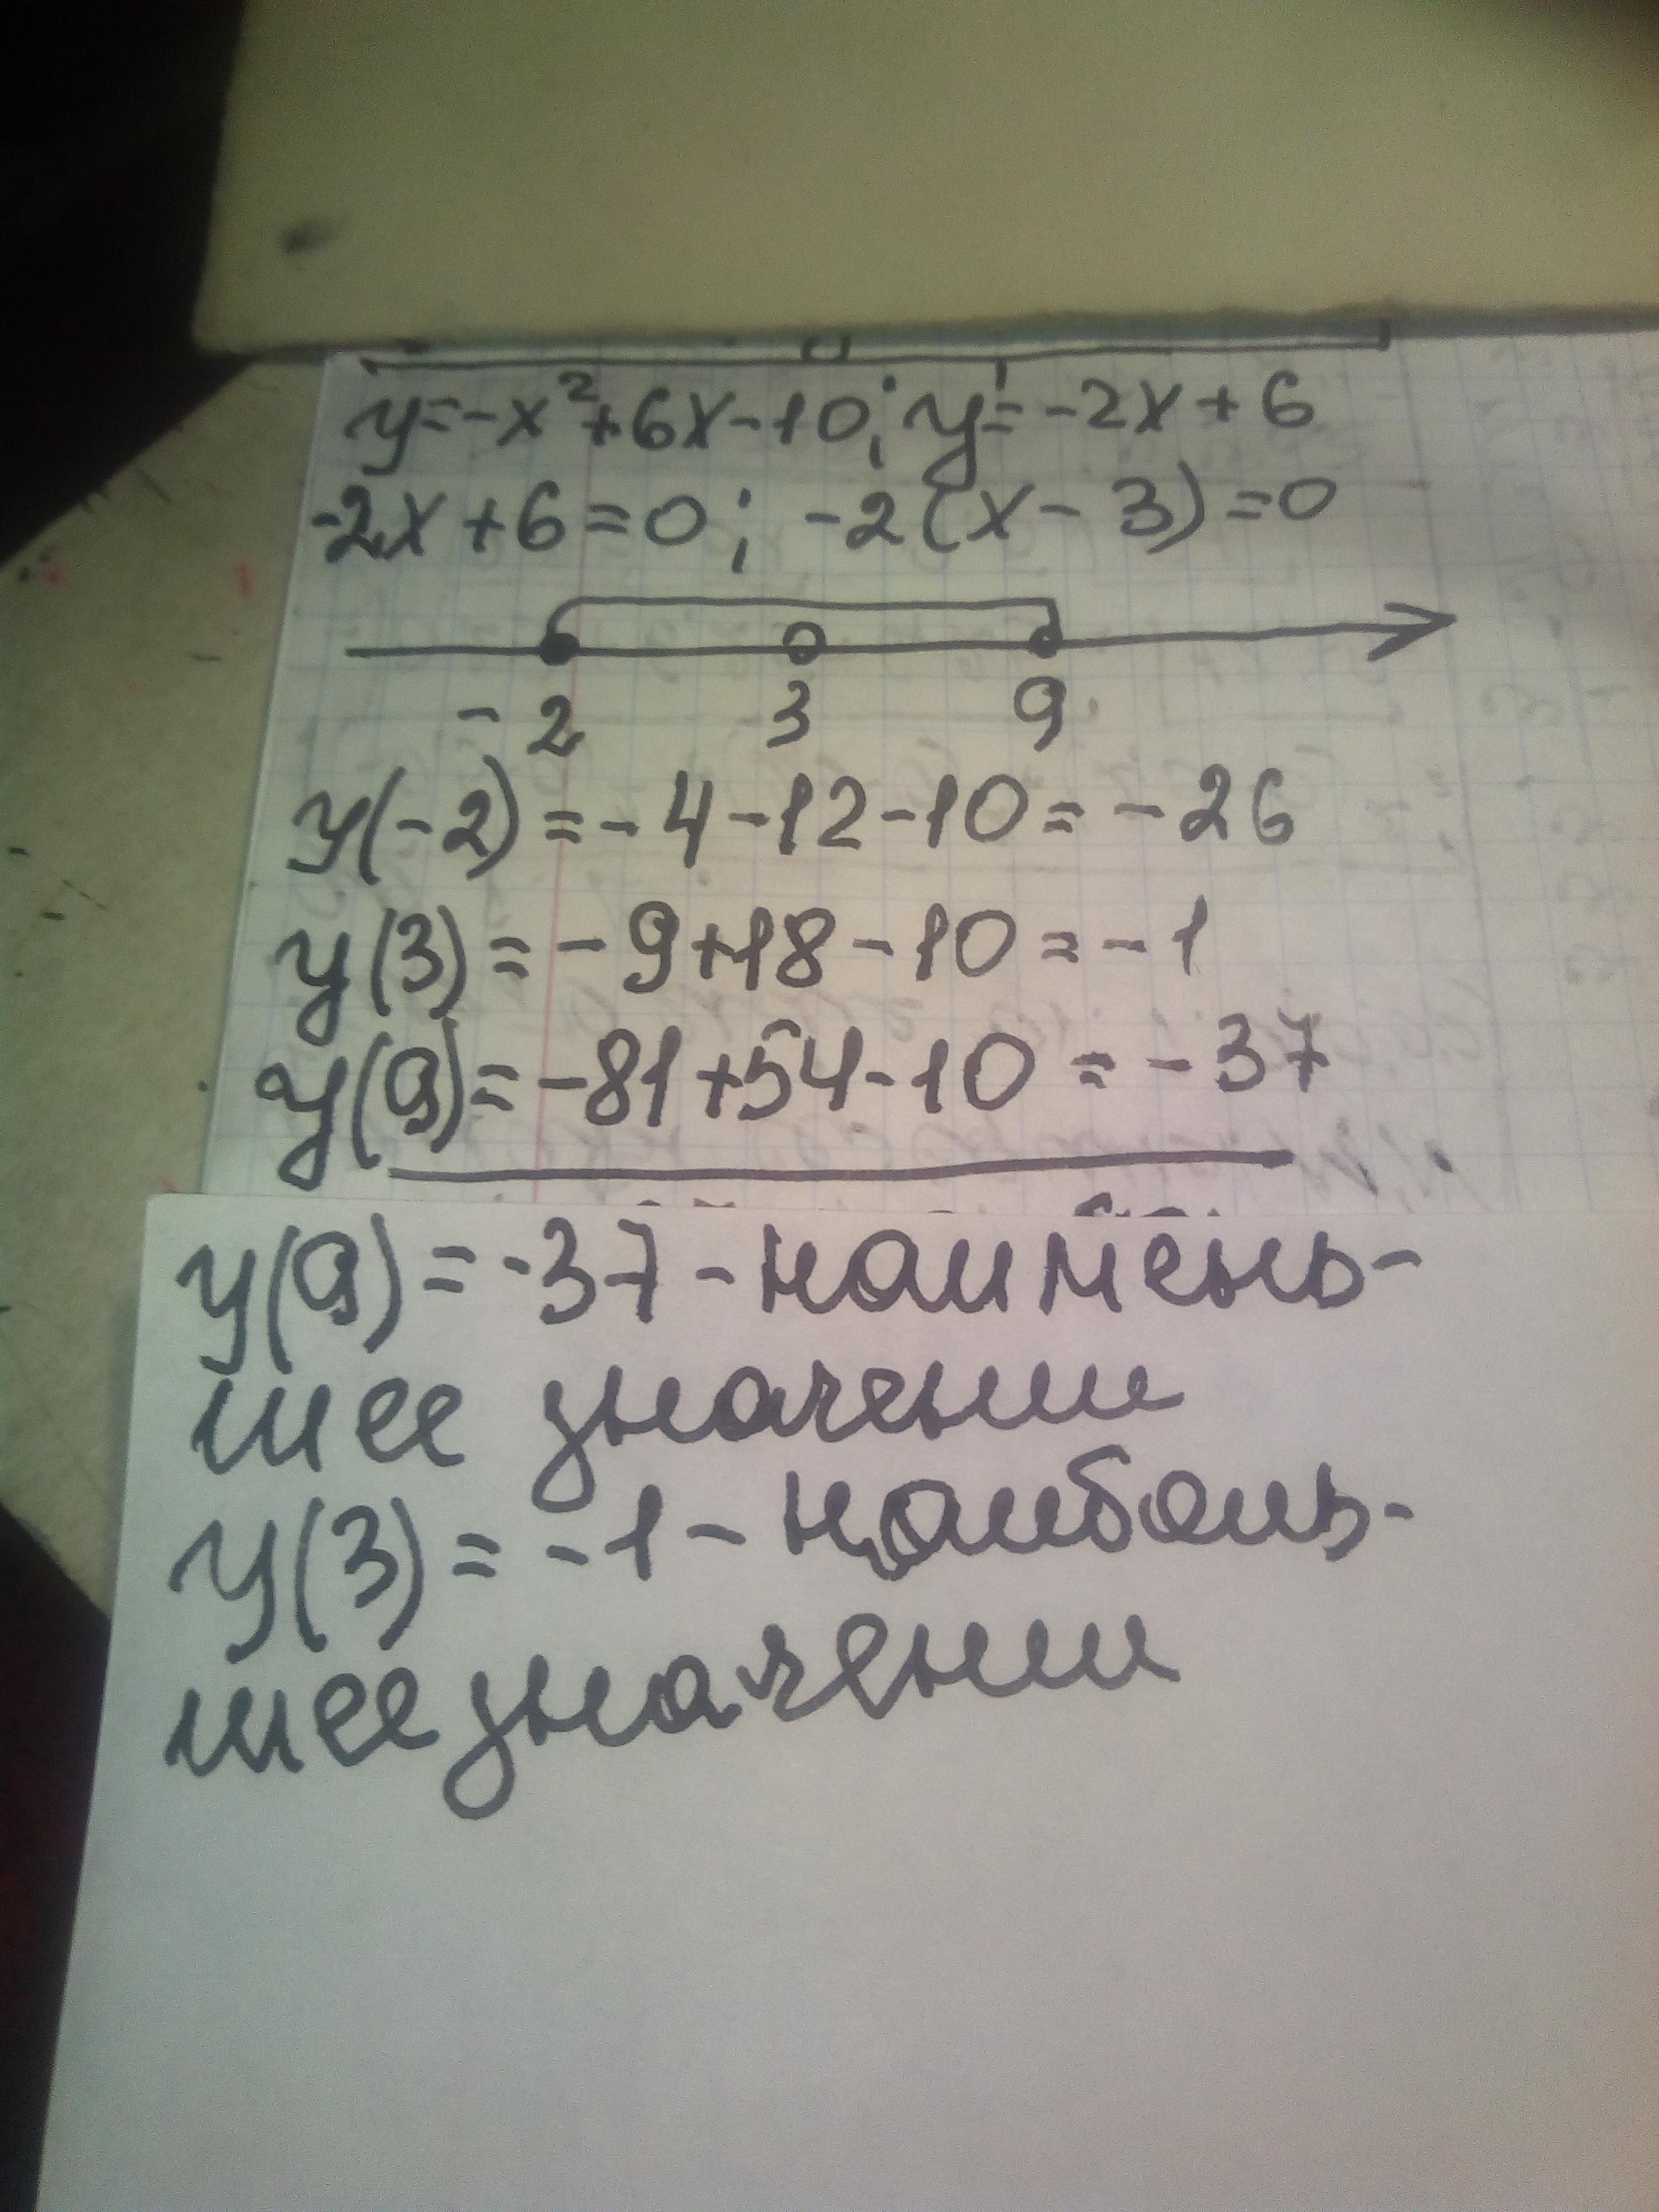 y=-x²+6x-10; y'=-2x+6
-2x+6=0; -2(x-3)=0
-2 3 9
y(-2)=-4-12-10=-26
y(3)=-9+18-10=-1
y(9)=-81+54-10=-37
y(9)=-37-наимень-
шее значени
y(3)=-1-наиболь-
шее значени